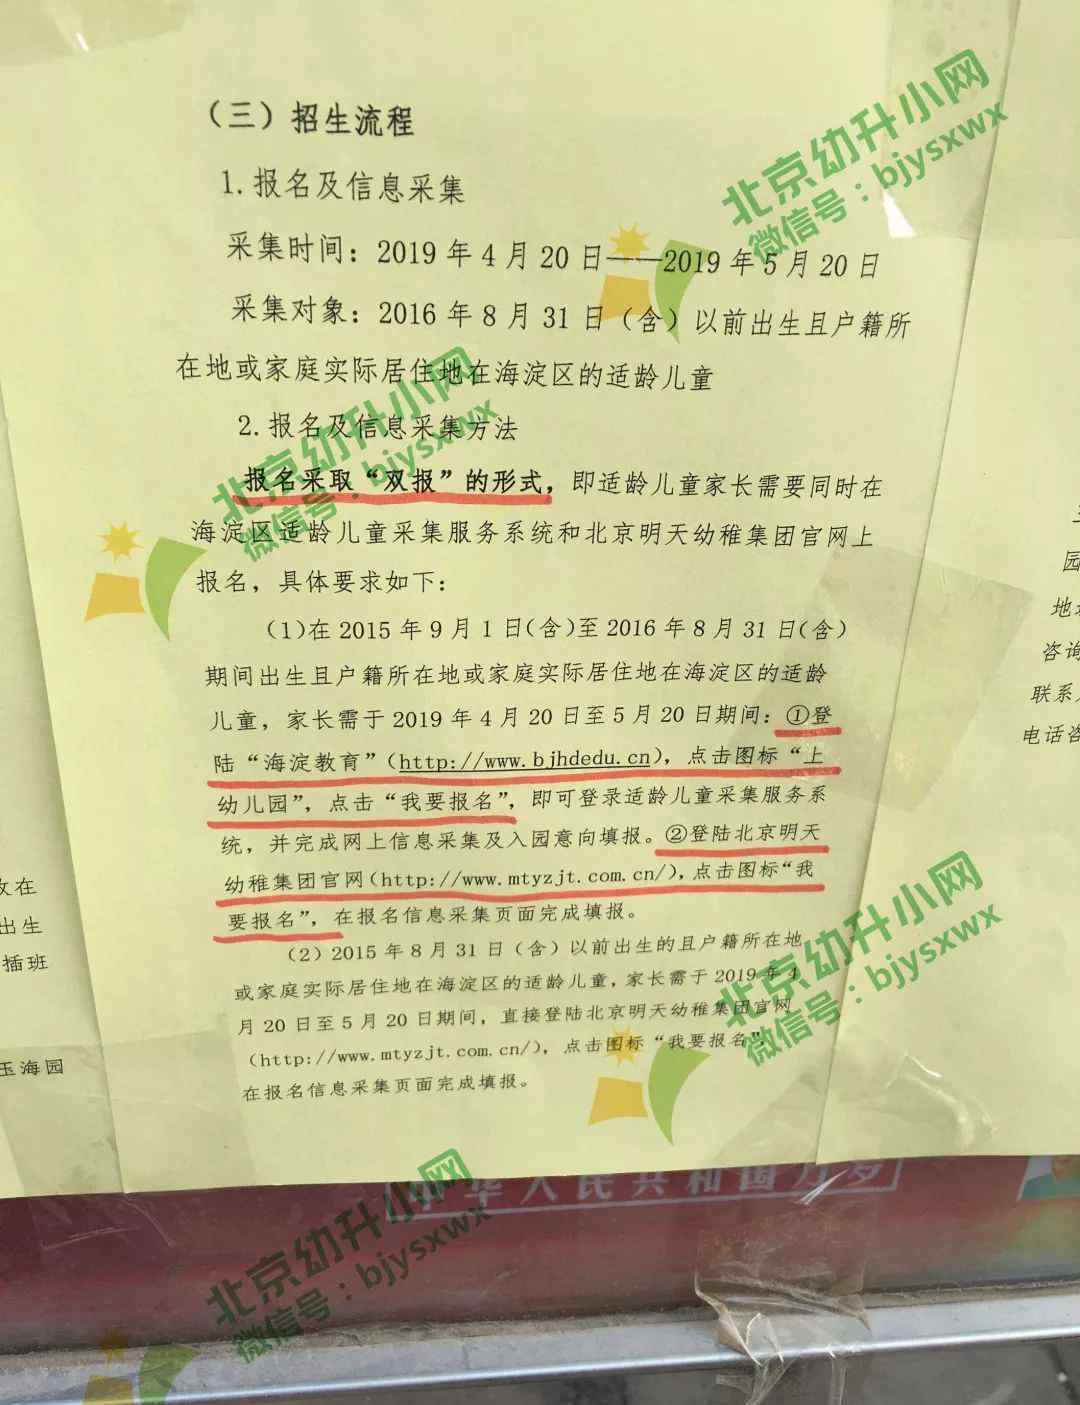 （三）招生流程
1.报名及信息采集
采集时间：2019年4月20日——2019年5月20日
采集对象：2016年8月31日（含）以前出生且户籍所
在地或家庭实际居住地在海淀区的适龄儿童
2.报名及信息采集方法
报名采取“双报”的形式，即适龄儿童家长需要同时在
海淀区适龄儿童采集服务系统和北京明天幼稚集团官网上
报名，具体要求如下：
（1）在2015年9月1日（含）至2016年8月31日（含）
期间出生且户籍所在地或家庭实际居住地在海淀区的适龄
儿童，家长需于2019年4月20日至5月20日期间：①登
陆“海淀教育”（http://www.bjhdedu.cn），点击图标“上
幼儿园”，点击“我要报名”，即可登录适龄儿童采集服务系
统，并完成网上信息采集及入园意向填报。②登陆北京明天
幼稚集团官网（http://www.mtyzjt.com.cn/），点击图标“我
要报名”，在报名信息采集页面完成填报。
（2）2015年8月31日（含）以前出生的且户籍所在地
或家庭实际居住地在海淀区的适龄儿童，家长需于2019年4
月20日至5月20日期间，直接登陆北京明天幼稚集团官网
（http://www.mtyzjt.com.cn/），点击图标“我要报名”，
在报名信息采集页面完成填报。
在
出生
插班
玉海园
园
地
咨询
联系
电话咨
中华人民共和国万岁
北京幼升小网
微信号：bjysxwx
北京幼升小网
微信号：bjysxwx
北京幼升小网
微信号：bjysxwx
北京幼升小网
微信号：bjysxwx